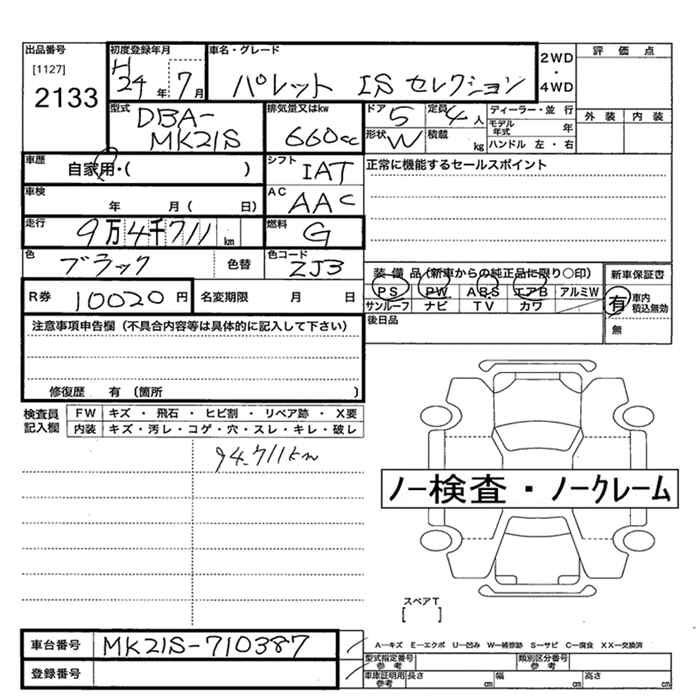 出品番号
[1127]
2133
初度登録年月
H
24年 7月
車名・グレード
パレット IS セレクション
2WD
・
4WD
評価点
外装 内装
型式
DBA-
MK21S
排気量又はkw
660cc
ドア 5
定員 4人
形状 W
積載 kg
ディーラー・並行
モデル年式 年
ハンドル 左・右
車歴
自家用・( )
シフト
IAT
正常に機能するセールスポイント
車検
年 月( 日)
AC
AAC
走行
9万4千711km
燃料
G
色
ブラック 色替
色コード
ZJ3
R券 10020円
名変期限 月 日
装備品(新車からの純正品に限り○印)
PS PW ABS エアB アルミW
サンルーフ ナビ TV カワ
後日品
新車保証書
有 車内積込無効
無
注意事項申告欄(不具合内容等は具体的に記入して下さい)
修復歴 有(箇所 )
検査員記入欄
FW キズ・飛石・ヒビ割・リペア跡・X要
内装 キズ・汚レ・コゲ・穴・スレ・キレ・破レ
94,711km
ノー検査・ノークレーム
スペアT
[ ]
車台番号 MK21S-710387
登録番号
A-キズ E-エクボ U-凹み W-補修跡 S-サビ C-腐食 XX-交換済
型式指定番号 参考
類別区分番号 参考
車庫証明用 参考 長さ cm 幅 cm 高さ cm